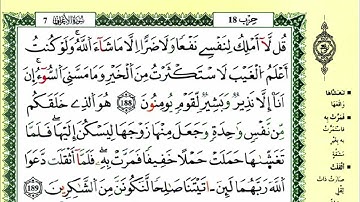 7
سورة الأعراف
حزب 18
قُل لَّآ أَمْلِكُ لِنَفْسِى نَفْعًا وَلَا ضَرًّا إِلَّا مَا شَآءَ ٱللَّهُ وَلَوْ كُنتُ
أَعْلَمُ ٱلْغَيْبَ لَٱسْتَكْثَرْتُ مِنَ ٱلْخَيْرِ وَمَا مَسَّنِىَ ٱلسُّوٓءُ إِنْ
أَنَا۠ إِلَّا نَذِيرٌ وَبَشِيرٌ لِّقَوْمٍ يُومِنُونَ 188 هُوَ ٱلَّذِى خَلَقَكُم
مِّن نَّفْسٍ وَٰحِدَةٍ وَجَعَلَ مِنْهَا زَوْجَهَا لِيَسْكُنَ إِلَيْهَا فَلَمَّا
تَغَشَّىٰهَا حَمَلَتْ حَمْلًا خَفِيفًا فَمَرَّتْ بِهِۦ فَلَمَّآ أَثْقَلَت دَّعَوَا
ٱللَّهَ رَبَّهُمَا لَئِنْ ءَاتَيْتَنَا صَٰلِحًا لَّنَكُونَنَّ مِنَ ٱلشَّٰكِرِينَ 189
تغشاها
فمرت به
أثقلت